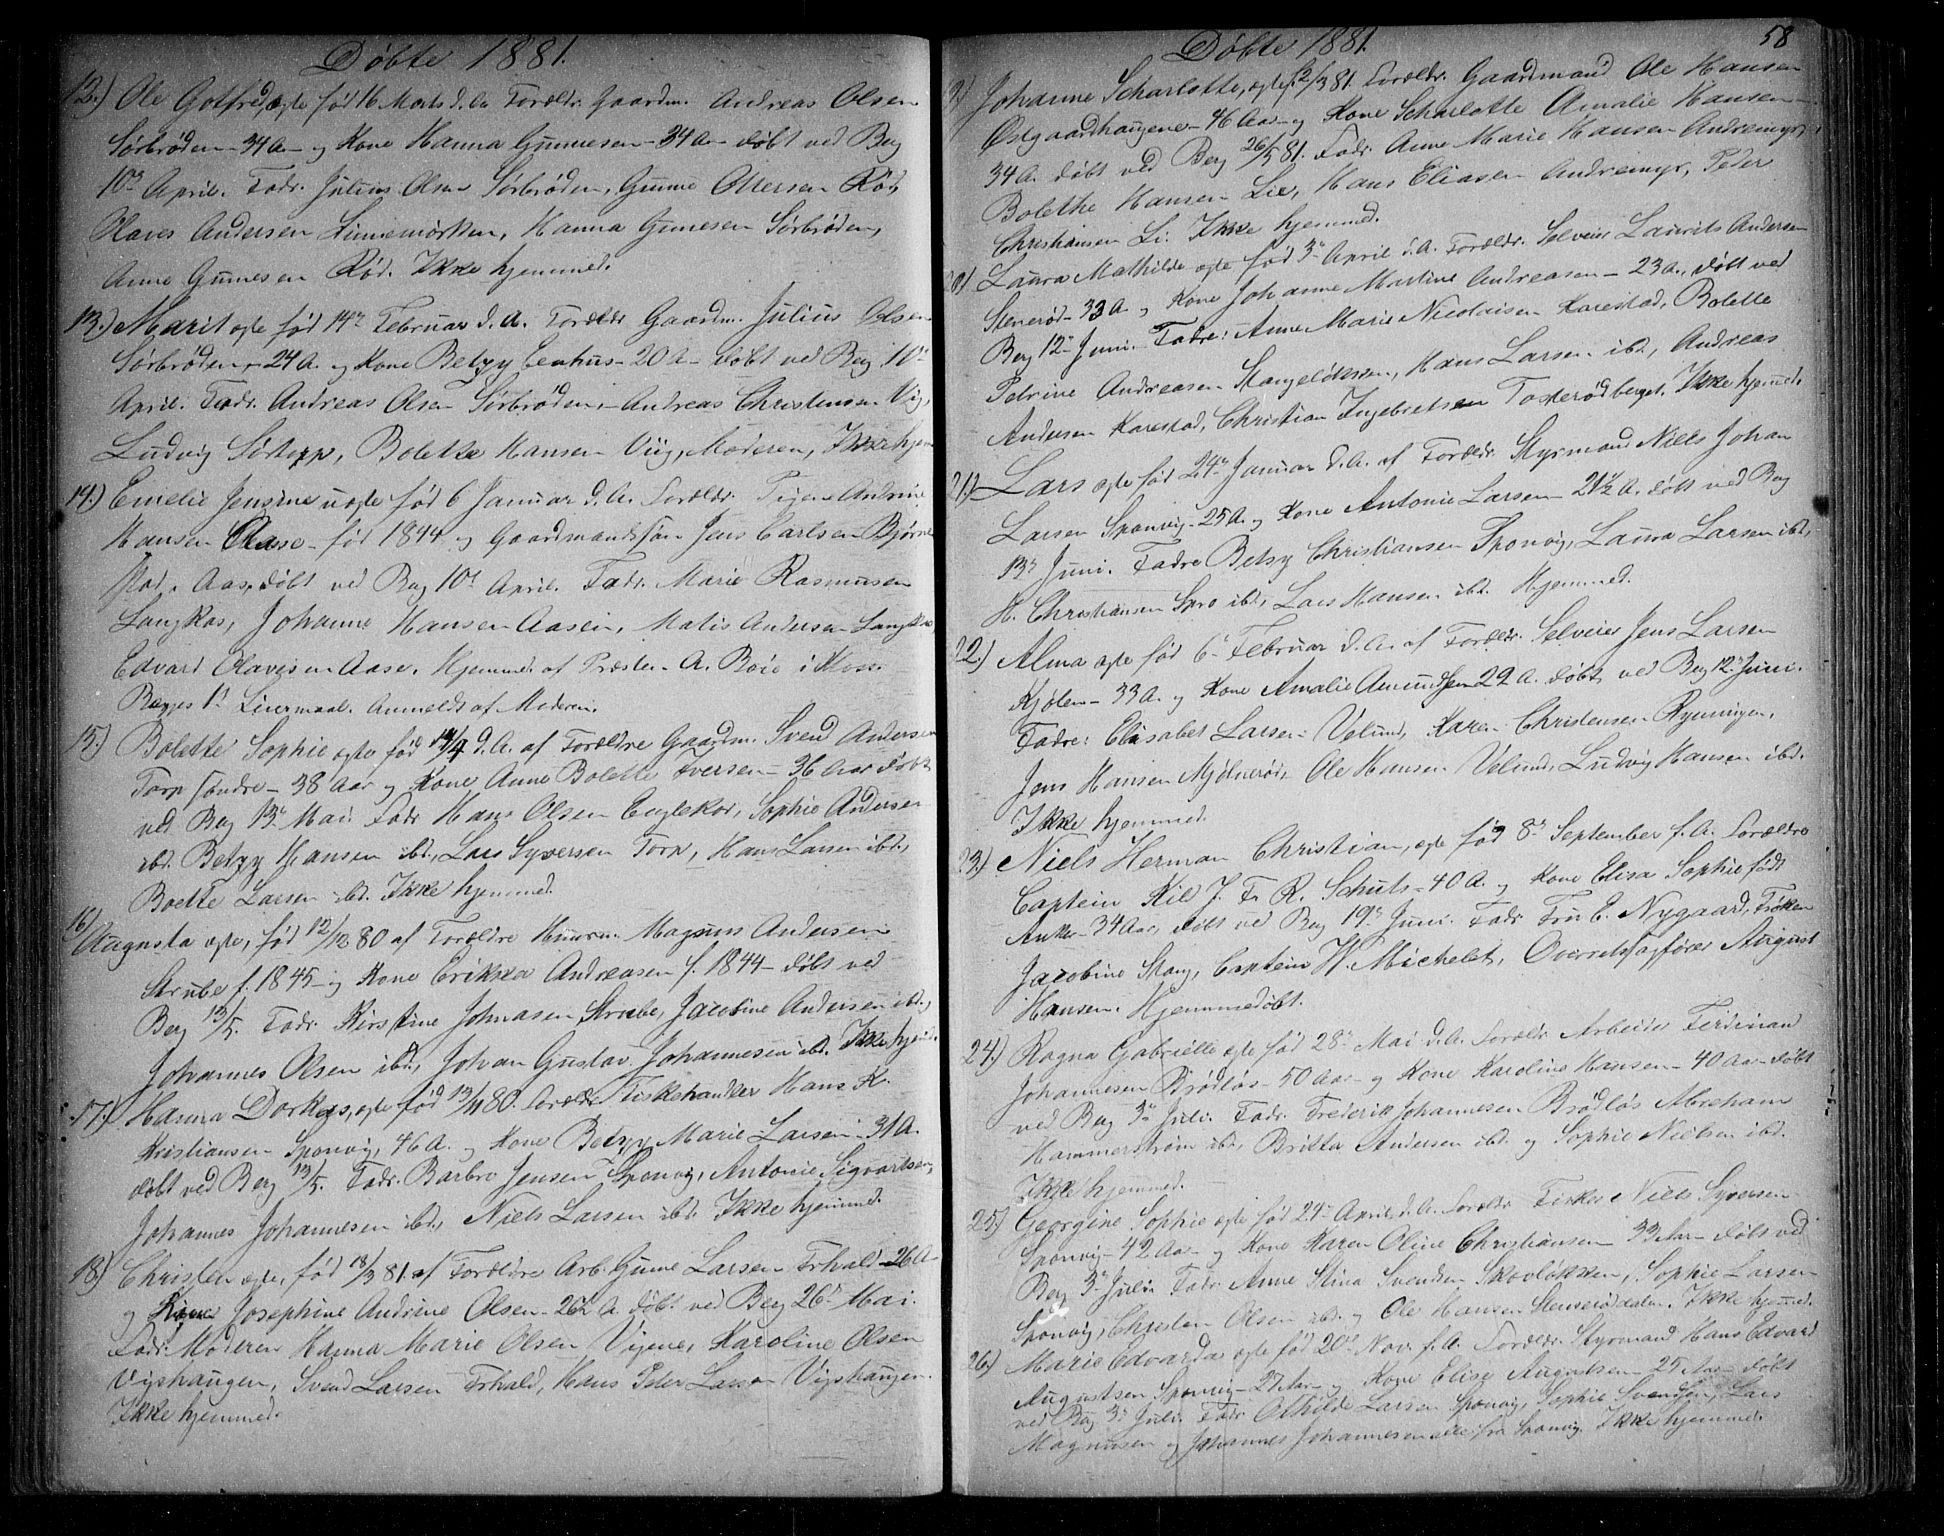 Døbte 1881.
12.) Ole Gotfred, ægte født 16 Marts d. A. Forældr. Gaardm. Andreas Olsen
Sørbrøden – 34 A – og Kone Hanna Gunnesen – 34 A – døbt ved Berg
10de April. Fadr. Julius Olsen Sørbrøden, Gunne Ottersen Rød,
Olaves Andersen Linnemørken, Hanna Gunnesen Sørbrøden,
Anne Gunnesen Rød. Ikke hjemmed.
13.) Marit ægte fød 14de Februar d. A. Forældr Gaardm. Julius Olsen
Sørbrøden – 24 A. og Kone Betzy Eenhus – 20 A – døbt ved Berg 10de
April. Fadr. Andreas Olsen Sørbrøden, – Andreas Christensen Vig,
Ludvig Sørtopp, Bolette Hansen Viig, Moderen, Ikke hjem
14.) Emelie Jensine uægte fød 6 Januar d. A. Forældr. Pigen Andrine
Hansen Aase – fød 1844 og Gaardmandssøn Jens Carlsen Bjørne
stad, Aas, døbt ved Berg 10de April. Fadr. Marie Rasmusen
Langkas, Johanne Hansen Aasen, Matis Andersen Langkas,
Edvard Olavesen Aase. Hjemmed. af Præsten A. Boie i Moss.
Begges 1ste Leiermaal. Anmeldt af Moderen.
15.) Bolette Sophie ægte fød 14/4 d. A. af Forældre Gaardm. Svend Andersen
Torp søndre – 38 Aar og Kone Anne Bolette Iversen – 36 Aar døbt
ved Berg 13de Mai Fadr Hans Olsen Englekor, Sophie Andersen
ibd. Betzy Hansen ibd., Lars Syversen Torp, Hans Larsen ibd.,
Boette Larsen ibd. Ikke hjemmed.
16) Augusta ægte, fød 12/12 80 af Forældre Husm. Magnus Andersen
Strube f. 1845 – og Kone Erikka Andreasen f. 1844 – døbt ved
Berg 13/5. Fadr. Kirstine Johnasen Strube, Jacobine Andersen ibd.,
Johannes Olsen ibd., Johan Gustav Johannesen ibd. Ikke hjem.
17.) Hanna Dorkas, ægte fød 13/11 80. Forældr. Fiskehandler Hans K.
Kristiansen Sponvig, 46 A. og Kone Betzy Marie Larsen – 31 A.
døbt ved Berg 13/5. Fadr. Barbro Jensen Sponvig, Antonie Sigvartsen,
Johannes Johannesen ibd., Niels Larsen ibd. Ikke hjemmed.
18) Christen ægte, fød 18/3 81 af Forældre Arb. Gunne Larsen Erhald – 26 A –
og Kone Josephine Andrine Olsen – 26½ A. døbt ved Berg 26de Mai.
Fadr. Moderen Hanna Marie Olsen Vigene, Karoline Olsen
Vigshaugen, Svend Larsen Erhald, Hans Peter Larsen Vigshaugen.
Ikke hjemmed.
58
Døbte 1881.
9) Johanne Scharlotte, ægte f. 12/3 81. Forældr. Gaardmand Ole Hansen
Østgaardhaugene – 46 Aar – og Kone Scharlotte Amalie Hansen –
34 A. døbt ved Berg 26/5 81. Fadr. Anne Marie Hansen Andremyr,
Bolethe Hansen Lie, Hans Eliasen Andremyr, Peder
Christiansen Li. Ikke hjemmed.
0) Laura Mathilde ægte fød 3de April d. A. Forældr. Selveier Laurits Andersen
Stenerød – 33 A og Kone Johanne Martine Andreasen – 23 A., døbt ved
Berg 12te Juni. Fadre: Anne Marie Nicolaisen Karestad, Bolette
Petrine Andreasen Stangeløkken, Hans Larsen ibd., Andreas
Andersen Karestad, Christian Ingebretsen Tosterødberget. Ikke hjemmd.
21.) Lars ægte fød 24de Januar d. A. af Forældr. Styrmand Niels Johan
Larsen Sponvig – 25 A. og Kone Antonie Larsen – 21½ A. døbt ved Berg
13de Juni. Fadre Betsy Christiansen Sponvig, Laura Larsen ibd.,
H. Christiansen Spro ibd., Lars Hansen ibd. Hjemmed.
22.) Alma ægte fød 6te Februar d. A. af Forældr. Selveier Jens Larsen
Kjølen – 33 A. og Kone Amalie Amundsen 29 A. døbt ved Berg 12te Juni.
Fadre: Elisabet Larsen Velund, Karen Christensen Rynningen,
Jens Hansen Mjølnerød, Ole Hansen Velund, Ludvig Hansen ibd.
Ikke hjemmed.
23.) Niels Herman Christian, ægte fød 8de September f. A. Forældre
Captein Kil J. Fr. R. Schuts – 40 A. og Kone Elisa Sophie født
Anker – 34 Aar, døbt ved Berg 19de Juni. Fadr Fru E. Nygaard, Frøken
Jacobine Stang, Captein W. Michelet, Overretssagfører August
Hansen. Hjemmedøbt.
24.) Ragna Gabrielle ægte fød 28de Mai d. A. Forældr. Arbeider Ferdinan
Johannesen Brødløs – 50 Aar – og Kone Karoline Hansen – 40 Aar – døbt
ved Berg 3de Juli. Fadr. Frederik Johannesen Brødløs Abraham
Hammerstrøm ibd., Britta Andersen ibd. og Sophie Nielsen ibd.
Ikke hjemmed.
25) Georgine Sophie ægte fød 27de April d. A. Forældr. Fisker Niels Syversen
Sponvig – 42 Aar – og Kone Karen Oline Christiansen – 33 Aar – døbt ved
Berg 3de Juli. Fadr. Anne Stina Svendsen Skovløkken, Sophie Larsen
Sponvig, Christen Olsen ibd. og Ole Hansen Stenserøddalen. Ikke hjemmd.
26.) Marie Edvarda ægte fød 20de Nov. f. A. Forældr. Styrmand Hans Edvard
Augustsen Sponvig – 27 Aar – og Kone Elise Augustsen – 25 Aar – døbt
ved Berg 3de Juli. Fadr. Othilde Larsen Sponvig, Sophie Svendsen, Lars
Magnusen og Johannes Johannesen alle fra Sponvig. Ikke hjemmed.